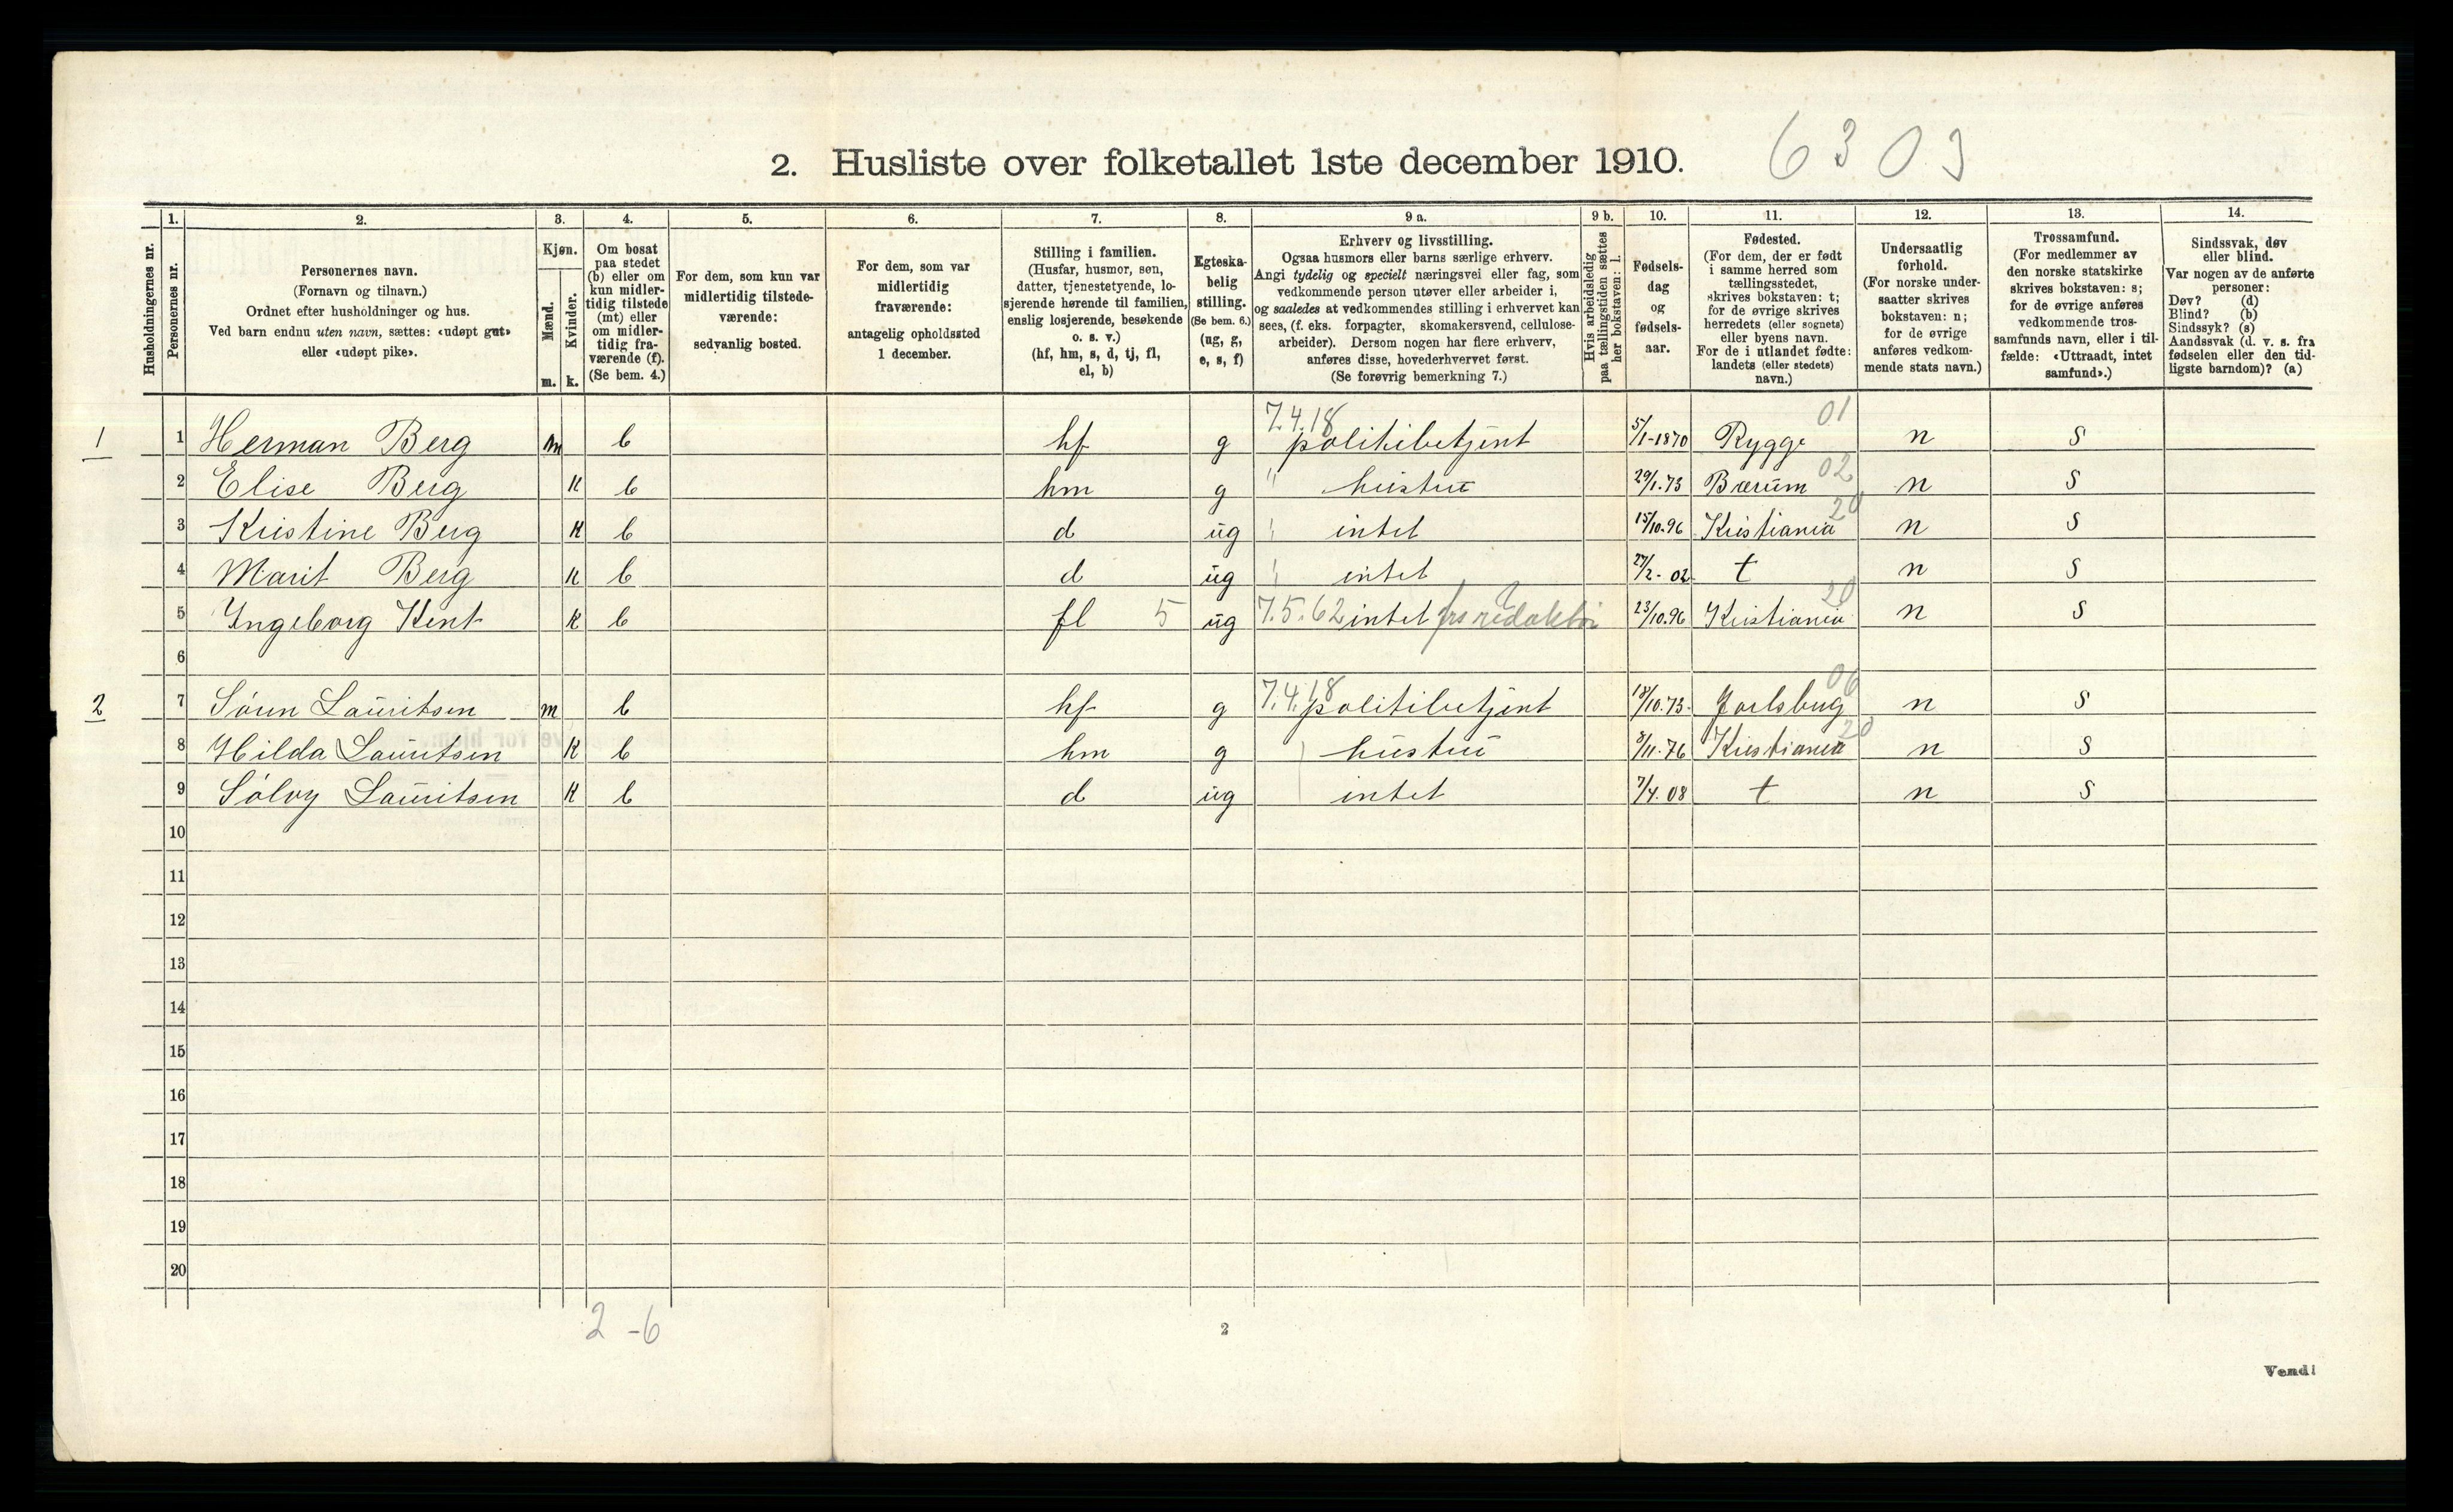 2. Husliste over folketallet 1ste december 1910. 6303
1. 2. 3. 4. 5. 6. 7. 8. 9 a. 9 b. 10. 11. 12. 13. 14.
Husholdningernes nr.
Personernes nr.
Personernes navn.
(Fornavn og tilnavn.)
Ordnet efter husholdninger og hus.
Ved barn endnu uten navn, sættes: «udøpt gut»
eller «udøpt pike».
Kjøn.
Mænd.
Kvinder.
m. k.
Om bosat
paa stedet
(b) eller om
kun midler-
tidig tilstede
(mt) eller
om midler-
tidig fra-
værende (f).
(Se bem. 4.)
For dem, som kun var
midlertidig tilstede-
værende:
sedvanlig bosted.
For dem, som var
midlertidig
fraværende:
antagelig opholdssted
1 december.
Stilling i familien.
(Husfar, husmor, søn,
datter, tjenestetyende, lo-
sjerende hørende til familien,
enslig losjerende, besøkende
o. s. v.)
(hf, hm, s, d, tj, fl,
el, b)
Egteska-
belig
stilling.
(Se bem. 6.)
(ug, g,
e, s, f)
Erhverv og livsstilling.
Ogsaa husmors eller barns særlige erhverv.
Angi tydelig og specielt næringsvei eller fag, som
vedkommende person utøver eller arbeider i,
og saaledes at vedkommendes stilling i erhvervet kan
sees, (f. eks. forpagter, skomakersvend, cellulose-
arbeider). Dersom nogen har flere erhverv,
anføres disse, hovederhvervet først.
(Se forøvrig bemerkning 7.)
Hvis arbeidsledig
paa tællingstiden sættes
her bokstaven: l.
Fødsels-
dag
og
fødsels-
aar.
Fødested.
(For dem, der er født
i samme herred som
tællingsstedet,
skrives bokstaven: t;
for de øvrige skrives
herredets (eller sognets)
eller byens navn.
For de i utlandet fødte:
landets (eller stedets)
navn.)
Undersaatlig
forhold.
(For norske under-
saatter skrives
bokstaven: n;
for de øvrige
anføres vedkom-
mende stats navn.)
Trossamfund.
(For medlemmer av
den norske statskirke
skrives bokstaven: s;
for de øvrige anføres
vedkommende tros-
samfunds navn, eller i til-
fælde: «Uttraadt, intet
samfund».)
Sindssvak, døv
eller blind.
Var nogen av de anførte
personer:
Døv? (d)
Blind? (b)
Sindssyk? (s)
Aandssvak (d. v. s. fra
fødselen eller den tid-
ligste barndom)? (a)
7.4.18 01
1 1 Herman Berg m b hf g politibetjent 5/1-1870 Rygge n s
2 Elise Berg k b hm g " hustru 29/1.73 Bærum 02 n s
3 Kristine Berg k b d ug " intet 15/10.96 Kristiania 20 n s
4 Marit Berg k b d ug " intet 27/2-02 t n s
5 Ingeborg Kent k b fl 5 ug 7.5.62 intet frs redaktør 23/10.96 Kristiania 20 n s
6
2 7 Søren Lauritsen m b hf g 7.4.18 politibetjent 18/10.73. Jarlsberg 06 n s
8 Hilda Lauritsen k b hm g hustru 8/11-76 Kristiania 20 n s
9 Sølvy Lauritsen k b d ug intet 7/4.08 t n s
10
11
12
13
14
15
16
17
18
19
20
2-6
2
Vend!